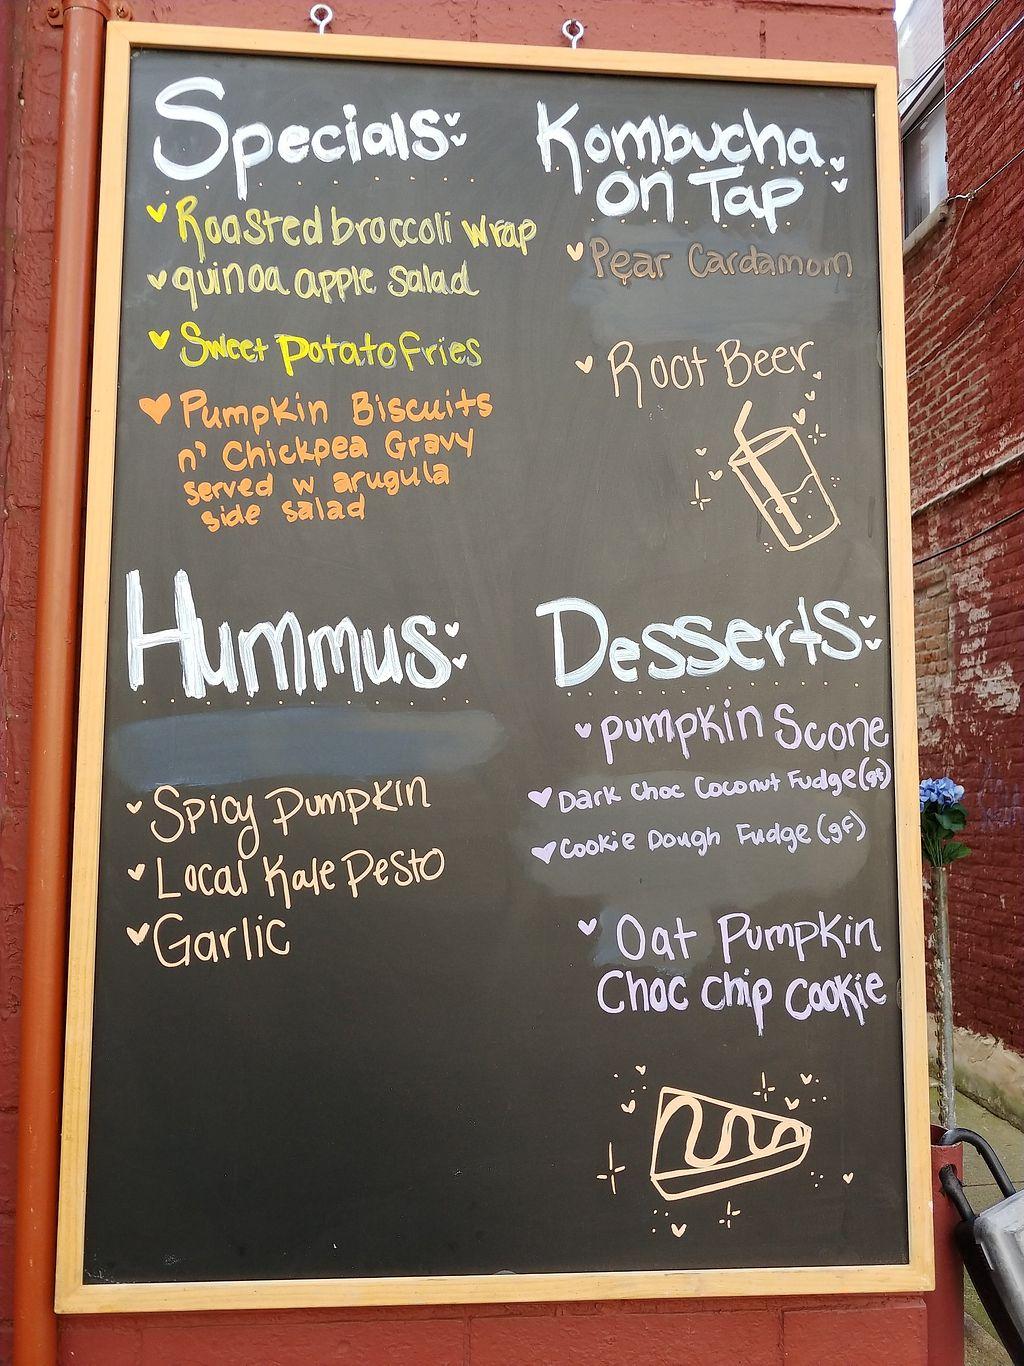 Specials
Roasted broccoli wrap
quinoa apple salad
Sweet Potato Fries
Pumpkin Biscuits
n' Chickpea Gravy
served w arugula
side salad
Kombucha
on Tap
Pear Cardamom
Root Beer
Hummus
Spicy Pumpkin
Local Kale Pesto
Garlic
Desserts
pumpkin Scone
Dark choc Coconut Fudge (gf)
Cookie Dough Fudge (gf)
Oat Pumpkin
Choc chip cookie